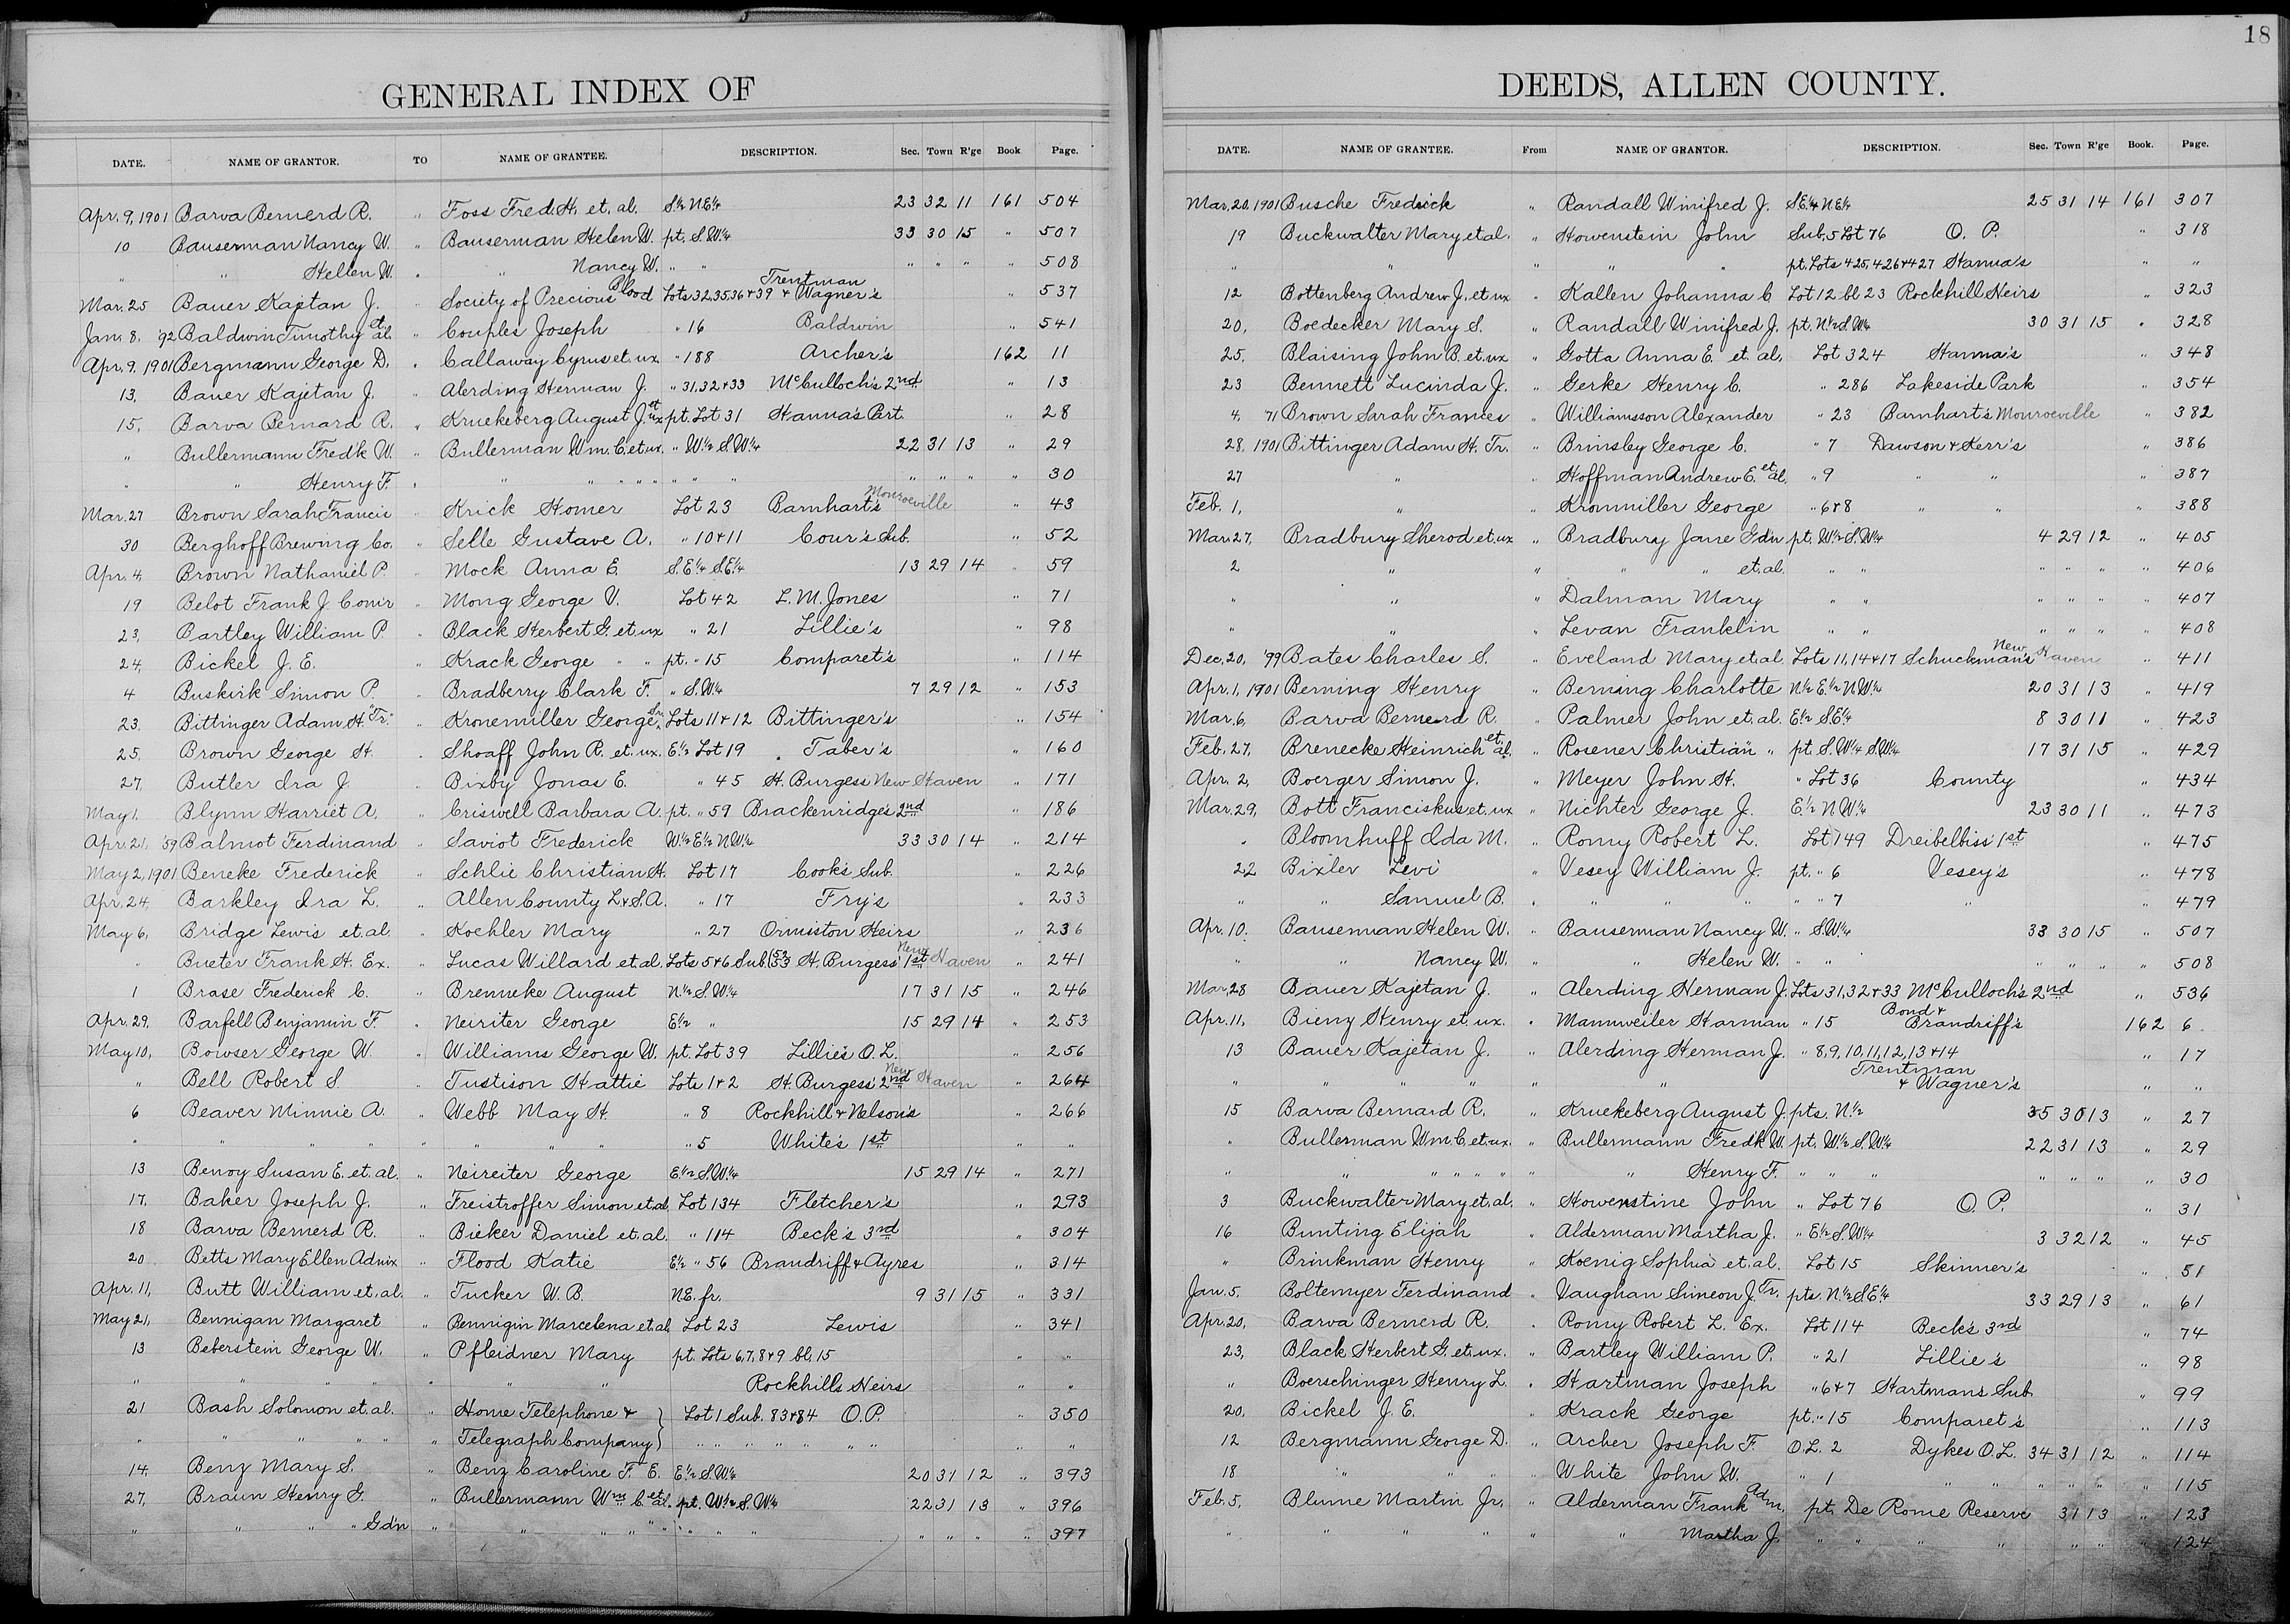 GENERAL INDEX OF
DATE. NAME OF GRANTOR. TO NAME OF GRANTEE. DESCRIPTION. Sec. Town R'ge Book Page.
Apr. 9, 1901 Barva Bernerd R. " Foss Fred. H. et. al. S½ N.E¼ 23 32 11 161 504
10 Bauserman Nancy W. " Bauserman Helen W. pt. S.W¼ 33 30 15 " 507
" " Hellen W. " " Nancy W. " " " " " " 508
Mar. 25 Bauer Kajetan J. Society of Precious Blood Lots 32,35,36 & 39 Trentman & Wagner's " 537
Jan. 8, '92 Baldwin Timothy et al. " Couples Joseph " 16 Baldwin " 541
Apr. 9, 1901 Bergmann George D. " Callaway Cyrus et. ux " 188 Archer's 162 11
13, Bauer Kajetan J. " Alerding Herman J. " 31,32 & 33 McCulloch's 2nd " 13
15, Barva Bernard R. " Kruekeberg August J. et ux pt. Lot 31 Hanna's Part. " 28
" Bullermann Fredk W. " Bullerman Wm. C. et ux. " W½ S.W¼ 22 31 13 " 29
" " Henry F. " " " " " " " " " " " " " 30
Mar. 27 Brown Sarah Francis " Krick Homer Lot 23 Barnhart's Monroeville " 43
30 Berghoff Brewing Co. " Selle Gustave A. " 10 & 11 Cour's Sub. " 52
Apr. 4, Brown Nathaniel P. " Mock Anna E. S.E¼ S.E¼ 13 29 14 " 59
19 Belot Frank J. Com'r " Mong George V. Lot 42 L. M. Jones " 71
23, Bartley William P. " Black Herbert G. et. ux " 21 Lillie's " 98
24, Bickel J. E. " Krack George " " pt. " 15 Comparet's " 114
4 Buskirk Simon P. " Bradberry Clark F. " S.W¼ 7 29 12 " 153
23. Bittinger Adam H. "Tr." " Kronemiller George Sr. Lots 11 & 12 Bittinger's " 154
25. Brown George H. " Shoaff John R. et. ux. E½ Lot 19 Taber's " 160
27, Butler Ira J. " Bixby Jonas E. " 45 H. Burgess New Haven " 171
May 1, Blynn Harriet A. " Criswell Barbara A. pt. " 59 Brackenridge's 2nd " 186
Apr. 21, '59 Balmot Ferdinand " Saviot Frederick W½ E½ N.W¼ 33 30 14 " 214
May 2, 1901 Beneke Frederick " Schlie Christian H. Lot 17 Cook's Sub. " 226
Apr. 24, Barkley Ira L. " Allen County L & S. A. " 17 Fry's " 233
May 6, Bridge Lewis et. al. " Koehler Mary " 27 Ormiston Heirs " 236
" Bueter Frank H. Ex. " Lucas Willard et. al. Lots 5 & 6 Sub. (52 53 H. Burgess' 1st New Haven " 241
1 Brase Frederick C. " Brenneke August N½ S.W¼ 17 31 15 " 246
Apr. 29, Barfell Benjamin F. " Neiriter George E½ " 15 29 14 " 253
May 10, Bowser George W. " Williams George W. pt. Lot 39 Lillie's O. L. " 256
" Bell Robert S. " Tustison Hattie Lots 1 & 2 H. Burgess' 2nd New Haven " 264
6 Beaver Minnie A. " Webb May H. " 8 Rockhill & Nelson's " 266
" " " " " " " " " 5 White's 1st " "
13 Benoy Susan E. et. al. " Neireiter George E½ S.W¼ 15 29 14 " 271
17, Baker Joseph J. " Freistroffer Simon et al, Lot 134 Fletcher's " 293
18 Barva Bernerd R. " Bieker Daniel et. al. " 114 Beck's 3rd " 304
20 Betts Mary Ellen Admx " Flood Katie E½ " 56 Brandriff & Ayres " 314
Apr. 11, Butt William et. al. " Tucker W. B. N.E. fr. 9 31 15 " 331
May 21, Bennigan Margaret " Bennigin Marcelena et. al, Lot 23 Lewis " 341
13 Beberstein George W. " Pfleidner Mary pt. Lots 6,7,8 & 9 bl. 15 " "
" " " " " " " Rockhills Heirs " "
21 Bash Solomon et. al. " Home Telephone & } Lot 1 Sub. 83 & 84 O. P. " 350
" " " " " " Telegraph Company } " " " " " " " "
14, Benz Mary S. " Benz Caroline F. E. E½ S.W¼ 20 31 12 " 393
27, Braun Henry G. " Bullermann Wm C. et al. pt. W½ S. W¼ 22 31 13 " 396
" " " " Gd'n " " " " " " " " " " " " 397
18
DEEDS, ALLEN COUNTY.
DATE. NAME OF GRANTEE. From NAME OF GRANTOR. DESCRIPTION. Sec. Town R'ge Book. Page.
Mar. 20, 1901 Busche Fredrick " Randall Winifred J. S.E¼ N.E¼ 25 31 14 161 307
19 Buckwalter Mary et al. " Howenstein John Sub. 5 Lot 76 O. P. " 318
" " " " " pt. Lots 425, 426 & 427 Hanna's " "
12 Bottenberg Andrew J. et ux " Kallen Johanna C. Lot 12 bl 23 Rockhill Heirs " 323
20, Boedecker Mary S. " Randall Winifred J. pt. N½ S.W¼ 30 31 15 " 328
25, Blaising John B. et. ux " Gotta Anna E. et. al, Lot 324 Hanna's " 348
23 Bennett Lucinda J. " Gerke Henry C. " 286 Lakeside Park " 354
4, 71 Brown Sarah Frances " Williamsson Alexander " 23 Barnhart's Monroeville " 382
28, 1901 Bittinger Adam H. Tr. " Brinsley George C. " 7 Dawson & Kerr's " 386
27 " " Hoffman Andrew E. et al. " 9 " " " 387
Feb. 1, " " Kronmiller George " 6 & 8 " " " 388
Mar. 27, Bradbury Sherod et. ux " Bradbury Jane Gd'n pt. W½ S.W¼ 4 29 12 " 405
2 " " " " et. al. " " " " " " 406
" " " Dalman Mary " " " " " " 407
" " " Levan Franklin " " " " " " 408
Dec. 20, '99 Bates Charles S. " Eveland Mary et. al Lots 11, 14 & 17 Schuckman's New Haven " 411
Apr. 1, 1901 Berning Henry " Berning Charlotte N½ E½ N.W¼ 20 31 13 " 419
Mar. 6, Barva Bernerd R. " Palmer John et. al. E½ S.E¼ 8 30 11 " 423
Feb. 27, Brenecke Heinrich et al. " Rosener Christian " pt. S.W¼ S.W¼ 17 31 15 " 429
Apr. 2, Boerger Simon J. " Meyer John H. " Lot 36 County " 434
Mar. 29, Bott Franciskus et. ux " Nichter George J. E½ N.W¼ 23 30 11 " 473
" Bloomhuff Ida M. " Romy Robert L. Lot 149 Dreibelbiss' 1st " 475
22 Bixler Levi " Vesey William J. pt. " 6 Vesey's " 478
" " Samuel B. " " " " " " 7 " " 479
Apr. 10. Bauserman Helen W. " Bauserman Nancy W. " S.W¼ 33 30 15 " 507
" " Nancy W. " " Helen W. " " " " " " 508
Mar. 28 Bauer Kajetan J. " Alerding Herman J. Lots 31,32 & 33 McCulloch's 2nd " 536
Apr. 11, Bienz Henry et. ux. " Mannweiler Harman " 15 Bond & Brandriff's 162 6
13 Bauer Kajetan J. " Alerding Herman J. " 8, 9, 10, 11, 12, 13 & 14 " 17
" " " " " " Trentman & Wagner's " "
15 Barva Bernard R. " Kruekeberg August J. pts. N½ 35 30 13 " 27
" Bullerman Wm. C. et. ux. " Bullermann Fredk W. pt. W½ S.W¼ 22 31 13 " 29
" " " " " " " " Henry F. " " " " " " " 30
3 Buckwalter Mary et. al. " Howenstine John " Lot 76 O. P. " 31
16 Bunting Elijah " Alderman Martha J. " E½ S.W¼ 3 32 12 " 45
" Brinkman Henry " Koenig Sophia et. al. Lot 15 Skinner's " 51
Jan. 5. Boltemyer Ferdinand " Vaughan Simeon J. Tr. pts. N½ S.E¼ 33 29 13 " 61
Apr. 20, Barva Bernerd R. " Romy Robert L. Ex. Lot 114 Beck's 3rd " 74
23, Black Herbert G. et. ux. " Bartley William P. " 21 Lillie's " 98
" Boerschinger Henry L. " Hartman Joseph " 6 & 7 Hartman's Sub. " 99
20, Bickel J. E. " Krack George pt. " 15 Comparet's " 113
12 Bergmann George D. " Archer Joseph F. O.L. 2 Dykes O.L. 34 31 12 " 114
18 " " " " White John W. " 1 " " " " " " 115
Feb. 5, Blume Martin Jr. " Alderman Frank Adm. pt. De Rome Reserve 31 13 " 123
" " " " " " Martha J. " " " " " " " 124